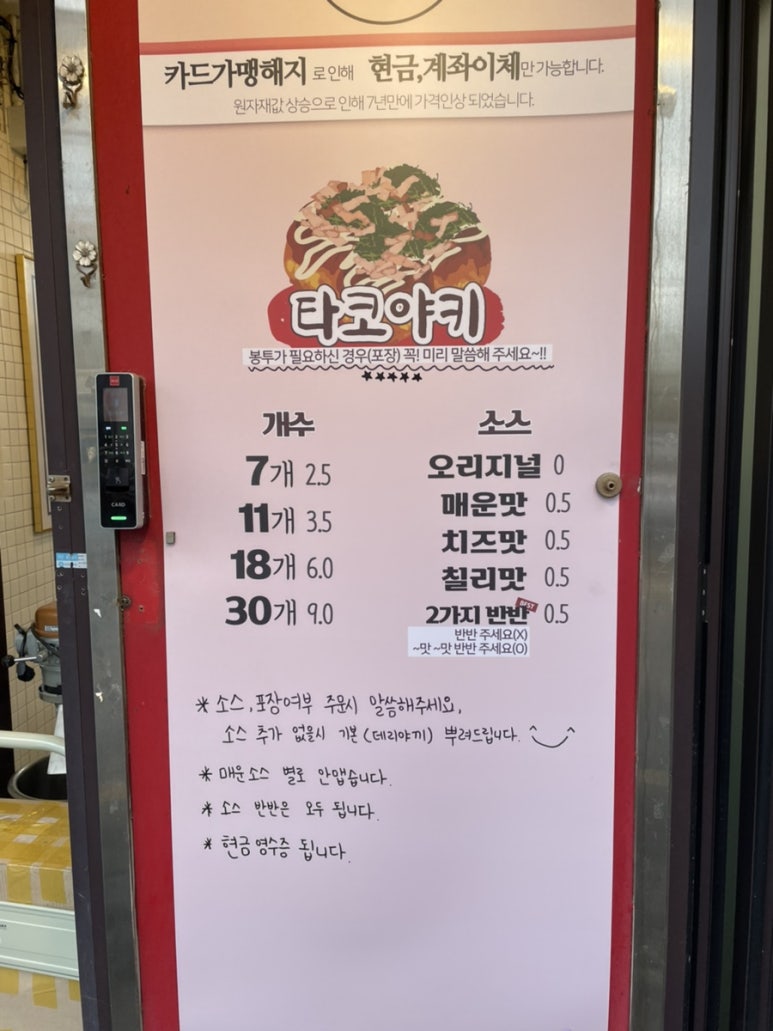 카드가맹해지 로 인해 현금,계좌이체만 가능합니다.
원자재값 상승으로 인해 7년만에 가격인상 되었습니다.
타코야키
봉투가 필요하신 경우(포장) 꼭! 미리 말씀해 주세요~!!
★★★★★
개수
7개 2.5
11개 3.5
18개 6.0
30개 9.0
소스
오리지널 0
매운맛 0.5
치즈맛 0.5
칠리맛 0.5
2가지 반반 BEST 0.5
반반 주세요(X)
~맛 ~맛 반반 주세요(O)
* 소스,포장여부 주문시 말씀해주세요,
소스 추가 없을시 기본(데리야끼) 뿌려드립니다. ^‿^
* 매운소스 별로 안맵습니다.
* 소스 반반은 모두 됩니다.
* 현금영수증 됩니다.
CARD